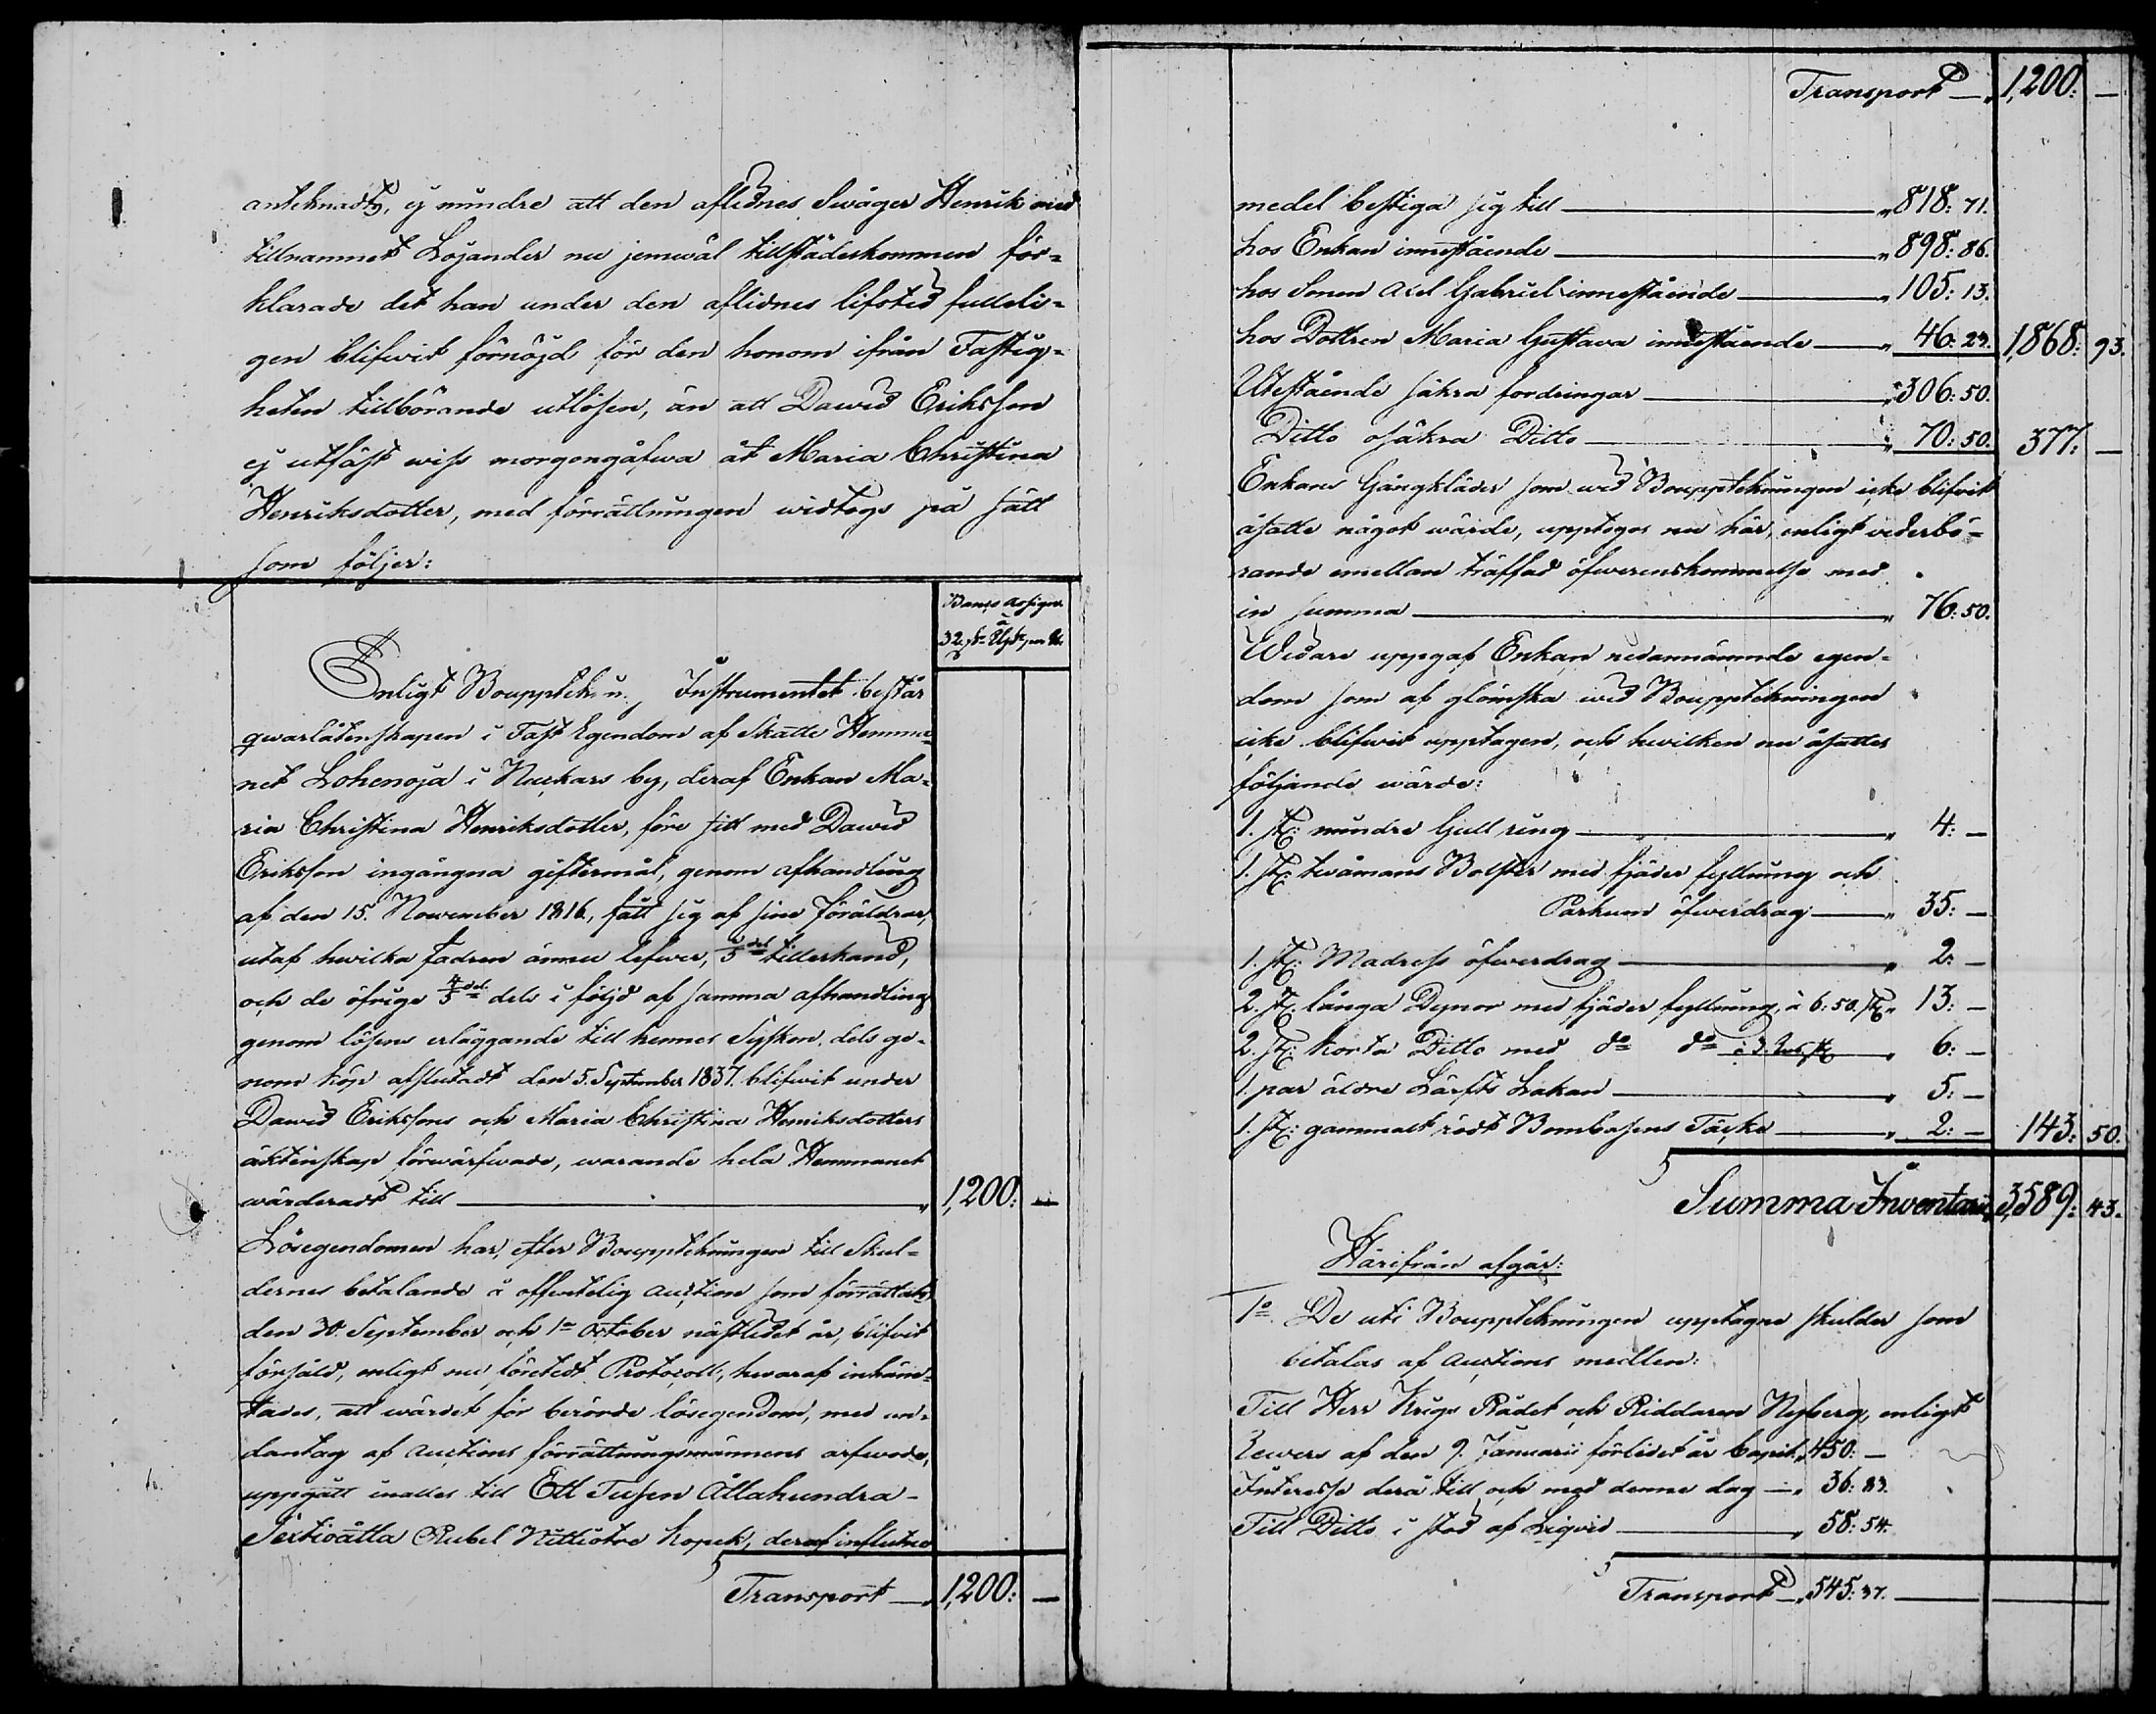 antecknadt, ej mindre att den aflidnes Swåger Henrik med
tillnamnet Lojander nu jemwäl tillstädeskommen för-
klarade det han under den aflidnes lifstid fulleli-
gen blifwit förnöjd för den honom ifrån Fastig-
heten tillhörande utlösen, än att Dawid Eriksson
ej utfäst wiss morgongåfwa åt Maria Christina
Henriksdotter, med förrättningen widtogs på sätt
som följer:
Banco Assign.
à
Enligt Bouppteckn: Instrumentet består
qwarlåtenskapen i Fast Egendom af Skatte Hemma-
net Lohenoja i Nuckars by, deraf Enkan Ma-
ria Christina Henriksdotter, före sitt med Dawid
Eriksson ingångna giftermål, genom afhandling
af den 15. November 1816, fått sig af sine föräldrar,
utaf hwilka fadren ännu lefwer, 1/5 del tillerkänd,
och de öfrige 4/5 del: dels i följd af samma afhandling
genom lösens erläggande till hennes Syskon, dels ge-
nom köp afslutadt den 5. September 1837. blifwit under
Dawid Erikssons och Maria Christina Henriksdotters
äktenskap förwärfwade, warande hela Hemmanet
wärderadt till „ 1,200: —
Lösegendomen har, efter Boupptekningen till Skul-
dernes betalande å offentelig auction som förrättats
den 30. September och 1a October nästlidet år, blifvit
försåld, enligt nu företedt Protocoll, hwaraf inhäm-
tades, att wärdet för berörde lösegendom, med un-
dantag af auctions förrättningsmännens arfwode,
uppgått inalles till Ett Tusen Åttahundra-
Sextioåtta Rubel Nittiotre Kopek, deraf influtne
Transport —„ 1,200: —
Transport —„ 1,200: —
medel bestiga sig till „ 818: 71.
hos Enkan innestående „ 898: 86.
hos Sonen Axel Gabriel innestående „ 105: 13.
hos Dottren Maria Gustava innestående „ 46: 23. 1,868: 93.
Utestående säkra fordringar „ 306: 50.
Ditto osäkra Ditto „ 70: 50. 377: —
Enkans Gångkläder som wid Boupptekningen icke blifvit
åsatte något wärde, upptogos nu här, enligt wederbö-
rande emellan träffad öfwerenskommelse med
in summa „ 76: 50.
Widare uppgaf Enkan nedannämnde egen-
dom som af glömska wid Boupptekningen
icke blifwit upptagen, och hwilken nu åsattes
följande wärde:
1. st: mindre Gull ring „ 4: —
1. st: twåmans Bolster med fjäder fyllning och
Parkum öfwerdrag „ 35: —
1. st: Madress öfwerdrag „ 2: —
2. st: långa Dynor med fjäder fyllning, à 6: 50. st: „ 13: —
2. st: korta Ditto med do do à 3. Rub. st: „ 6: —
1. par äldre Lärfts Lakan „ 5: —
1. st: gammalt rödt Bombasins Täcke „ 2: — 143: 50.
Summa Inventarii 3,589: 43.
Härifrån afgår:
1o. De uti Boupptekningen upptagne skulder som
betalas af auctions medlen:
Till Herr Krigs Rådet och Riddaren Nyberg, enligt
Rewers af den 9. Januarii förlidet år Capit. „ 450: —
Interesse derå till och med denne dag — „ 36: 83.
Till Ditto i stöd af Liqvid „ 58: 54.
Transport —„ 545: 37.